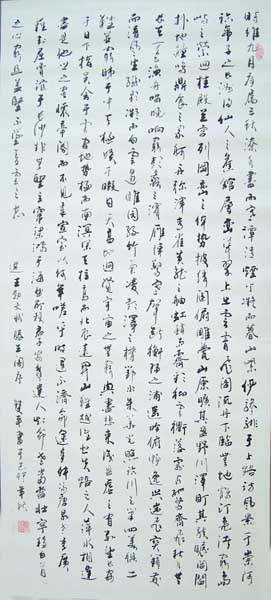 時維九月序屬三秋潦水盡而寒潭清煙光凝而暮山紫儼驂騑于上路訪風景于崇阿
臨帝子之長洲得仙人之舊館層巒聳翠上出重霄飛閣流丹下臨無地鶴汀鳧渚窮島
嶼之縈迴桂殿蘭宮列岡巒之體勢披繡闥俯雕甍山原曠其盈視川澤盱其駭矚閭閻
撲地鐘鳴鼎食之家舸艦彌津青雀黃龍之舳虹銷雨霽彩徹雲衢落霞與孤鶩齊飛秋水共
長天一色漁舟唱晚響窮彭蠡之濱雁陣驚寒聲斷衡陽之浦遙吟俯暢逸興遄飛爽籟發
而清風生纖歌凝而白雲遏睢園綠竹氣凌彭澤之樽鄴水朱華光照臨川之筆四美俱二
難並窮睇眄于中天極娛遊于暇日天高地迥覺宇宙之無窮興盡悲來識盈虛之有數望長安
于日下指吳會于雲間地勢極而南溟深天柱高而北辰遠關山難越誰悲失路之人萍水相逢
盡是他鄉之客懷帝閽而不見奉宣室以何年嗚呼時運不濟命途多舛馮唐易老李廣
難封屈賈誼于長沙非無聖主竄梁鴻于海曲所賴君子安貧達人知命老當益壯寧移白首
之心窮且益堅不墜青雲之志 王勃 滕王閣序 己卯年秋